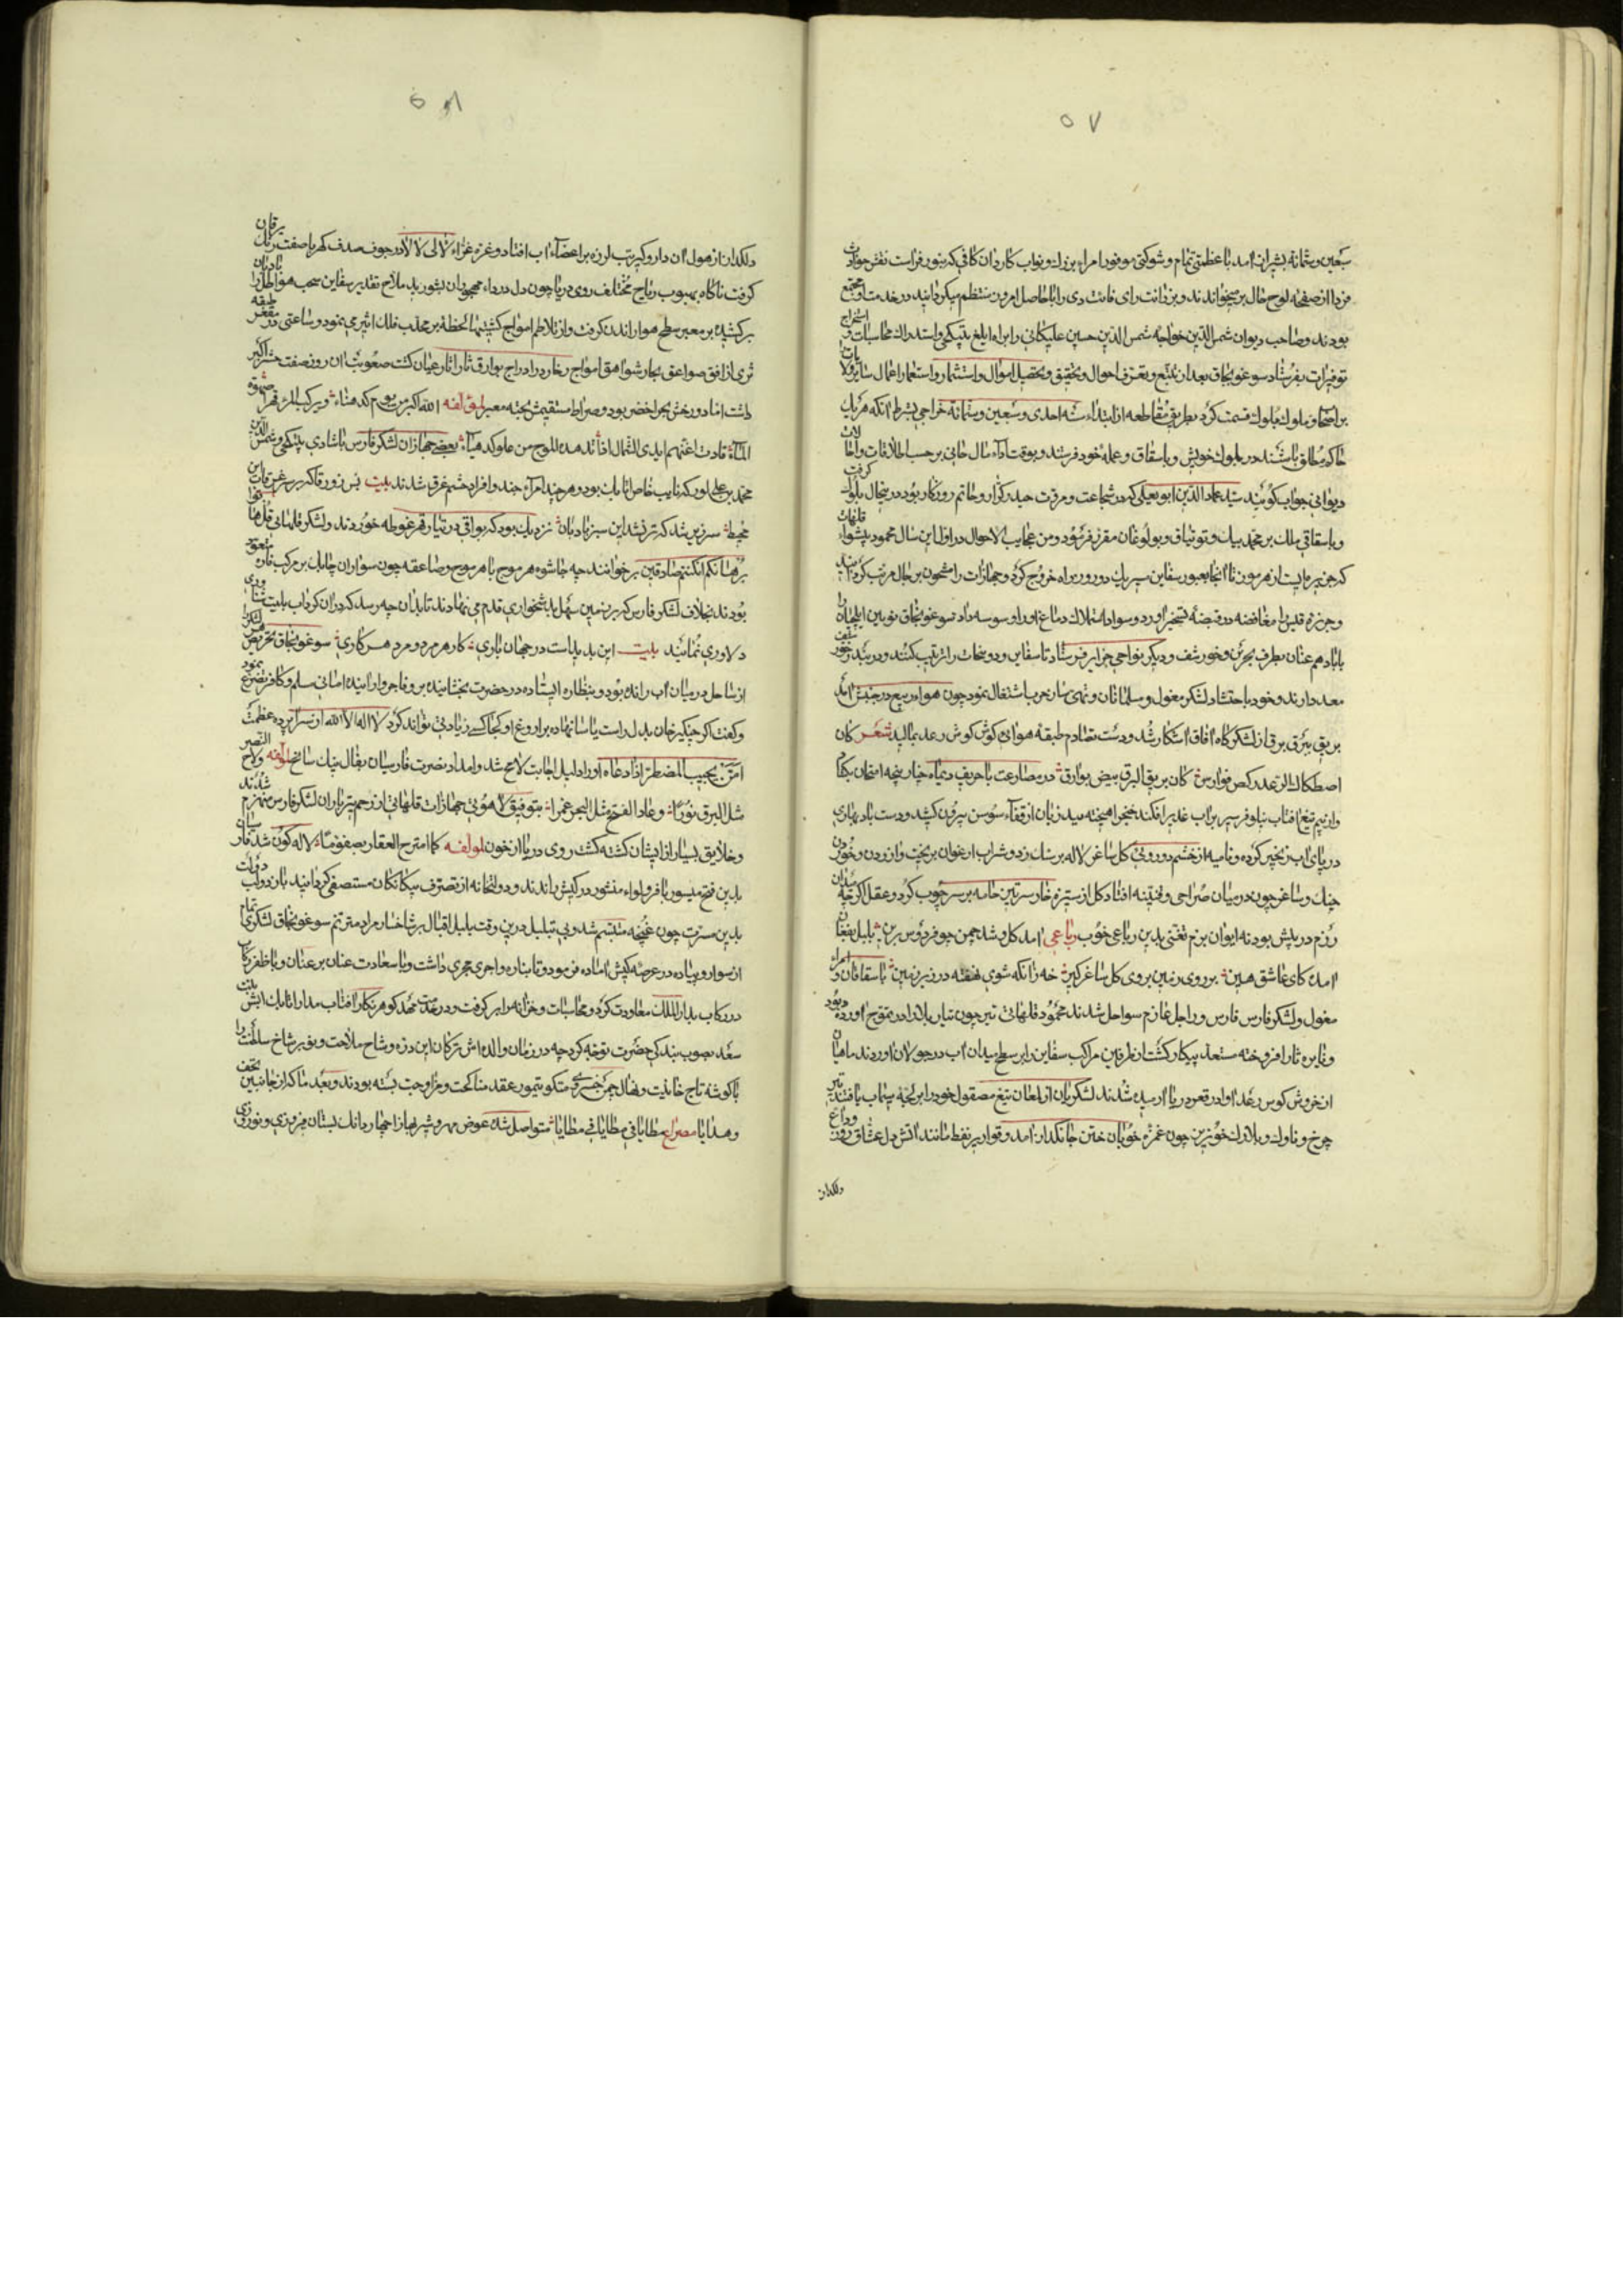 ۵۷
سبعین و ثمانة بشیراز آمد با عظمتی تمام و شوکتی موفور امراء بزرك و نواب کاردان کافی که بنور فراست نقش حوادث
فردا از صفحۀ لوح حال بر میخواندند و برزانت رای فائت دی را با حاصل امروز منتظم میکردانید در خدمت او مجتمع
بودند و صاحب دیوان شمس الدین خواجه شمس الدین حسین علکانی را براه ایلغ بتیکچی و استدراك محاسبات و استخراج
توفیرات بفرستاد سوغونجاق بعد از تتبع و تعرف احوال و تحقیق و تحصیل اموال و استثمار و استعمار اعمال سایر ولایات
بر اصحاب و ملوك بلوك قسمت کرد بطریق مقاطعه از ابتداء سنه احدی و سبعین و ثمانة خراجی بشرط آنکه هر یك
حاکم مطلق باشند در بلوك خویش و باسقاق و عمله خود فرستند و بوقت اداء مال خانی بر حسب اطلاقات و احالات
دیوانی جواب کویند سید عماد الدین ابو یعلی که در شجاعت و مروت حیدر کرار و حاتم روزکار بود در ینحال بلوك کرفت
و باسقاقی ملك بر محمد بیك و توتیاق و بولوغان مقرر فرمود و من عجایب الاحوال در اوایل این سال محمود پیشواء قلهات
که جزیره ایست از هرموز تا آنجا بعبور سفاین سه یك دو روزه راه خروج کرد و جهازات را مشحون برجال مرتب کردانید
و جزیره قیس را مغافصه در قبضۀ تسخیر آورد و سواد استملاك دماغ او را وسوسه داد سوغونجاق نویین ایلچیان را
با باد هم عنان بطرف بحرین و خورشف و دیکر نواحی جزایر فرستاد تا سفاین و دونجات را ترتیب کنند و در بند خور سیف
معد دارند و خود باحتشاد لشکر مغول و مسلمانان و تهی ساز حرب اشتغال نمود چون هواء ربیع در جنبش آمد
بریق بیرق برق از لشکرکاه آفاق آشکار شد و دست تصادم طبقه هوائی کوش کوش رعد بمالید شعر کان
اصطکاك الرعد رکض فوارس کان بریق البرق بیض بوارق در مصارعت با حریف دیماه چنار پنجه امتحان بکشاد
و از بیم تیغ آفتاب نیلوفر سپر بر آب غدیر افکند خنجر آهیخته بید زبان از قفاء سوسن بیرون کشید و دست باد بهاری
در پای آب زنجیر کرده و نامیه از خشم دورویی کل ساغر لاله بر سنك زد و شراب ارغوان بریخت و از زدن و خوردن
چنك و ساغر چون در میان صراحی و قنینه افتاد کل از ستیزه خار سرتیز جامه بر سر چوب کرد و عقل اکر چه میدان
رزم در پیش بود نه ایوان بزم تغنی بدین رباعی خوب رباعی آمد کل و شد چمن چو فردوس برین بلبل بفغان
آمد کای عاشق هین بر روی زمین بروی کل ساغر کیر خه زانکه شوی نهفته در زیر زمین باسقاقان و امراء
مغول و لشکر فارس فارس و راجل عازم سواحل شدند محمود قلهاتی نیز چون تیار بلا را در تموج آورده بود
و نایره نار افروخته مستعد پیکار کشت از طرفین مراکب سفاین را بر سطح میدان آب در جولان آوردند ماهیان
از خروش کوس رعد آوا در قعر دریا آرمیده شدند لشکریان از لمعان تیغ مصقول خود را بر تختۀ سیماب یافتند تیر
چرخ و ناوك و بلارك خونریز چون غمزه خوبان ختن جانکداز آمد و قواریر نفط مانند آتش دل عشاق روز وداع
دلکداز
۵۸
دلکداز از هول آن دار و کیر تب لرزه بر اعضاء آب افتاد و غرۀ غراء لالی لالا در جوف صدف کهربا صفت رنك یرقان
کرفت ناکاه بهبوب ریاح مختلف روی دریا چون دل درداء مهجوران بشورید ملاح تقدیر سفاین سحب هواطل را بادبان
برکشید بر معبر سطح هوا راندن کرفت و از تلاطم امواج کشتیها لحظۀ بر محدب فلك اثیر می نمود و ساعتی در مقعر طبقه
ثری از افق صواعق بحار شواهق امواج زخار در ادراج بوارق نار آثار عیان کشت صعوبت آن روز صفت حشر اکبر
داشت اما دورخش بحر اخضر بود و صراط مستقیمش تختۀ معبر لمؤلفه الله اکبر من یوم کد هناء و یرکب المرء قهرا صهوة
الماء قادت اعنتهم ایدی الشمال اذا تدهده الموج من علو کدهیاء بعضی جهازات لشکر فارس باشادی بتیکچی و شمس الدین
محمد بن علی لور که نایب خاص اتابك بود و هر چند امراء جند و افراد حشم غرق شدند بیت بس زورقا که بر سر غرقاب این
محیط سر زیر شد که تر نشد این سبز بادبان نزدیك بود که بواقی در تیار قهر غوطه خوردند و لشکر قلهاتی قل هاتوا
برهانکم ان کنتم صادقین بر خوانند چه چاشوه هر موج با هر موج و صاعقه چون سواران چابك بر مرکب فاره متعود
بودند بخلاف لشکر فارس که بر زمین سهل بدشخواری قدم می نهادند تا بدان چه رسد که در آن کرداب بلیت شناوری
دلاوری نمائید بیت این بد یاست در جهان باری کار هر مرد و مرد هر کاری سوغونجاق تحریض لشکر را
از ساحل در میان آب رانده بود و بنظاره ایستاده در حضرت بخشاینده بر وفاجر و آراینده امانی مسلم و کافر تضرع نمود
و کفت اکر چنکیز خان بدل راست یاسا نهاده بر اروغ او کجا کسی زیادتی تواند کرد لا اله الا الله از سرا پرده عظمت
امن یجیب المضطر اذا دعاه آوراد لیل اجابت لایح شد و امداد نصرت فارسیان بفال نیك سانح لمؤلفه ولاح النصر
مثل البرق نورا و عاد الفتح مثل البحر غمرا بتوفیق لاهوتی جهازات قلهاتی از زحم تیر باران لشکر فارس منهزم شدند
و خلایق بسیار از ایشان کشته کشت روی دریا از خون لمؤلفه کما امترج العقار بصفو ماء لاله کون شد فارسیان
بدین فتح میسور با فر و لواء منشور در کیش راندند و دولتخانه از تصرف بیکانکان مستصفی کردانید باز دولت
بدین مسرت چون غنچه متبسم شد و بی تبلبل درین وقت بلبل اقبال بر شاخسار مراد مترنم سوغونجاق لشکری تمام
از سوار و پیاده در عرصۀ کیش آماده فرمود و تابناره و اجری مجری داشت و با سعادت عنان بر عنان و با ظفر رکاب
در رکاب بدار الملك معاودت کرد و محاسبات و خزانه را بر کرفت و در خدمت مهد کوهر نکار آفتاب مدار اتابك ابش بنت
سعد بصوب بندکی حضرت توجه کرد چه در زمان والده اش ترکان این دره وشاح ملاحت و نوبر شاخ سلطنت را
با کوشۀ تاج خانیت و نهال چمن خسروی منکوتیمور عقد مناکحت و مزاوجت بسته بودند و بعد ما که از جانبین تحف
و هدایا مصراع مطایا فی مطایا فی مطایا متواصل شده عوض مهر و شیر بها از احجار دانك بستان فیروزی و نوروزی